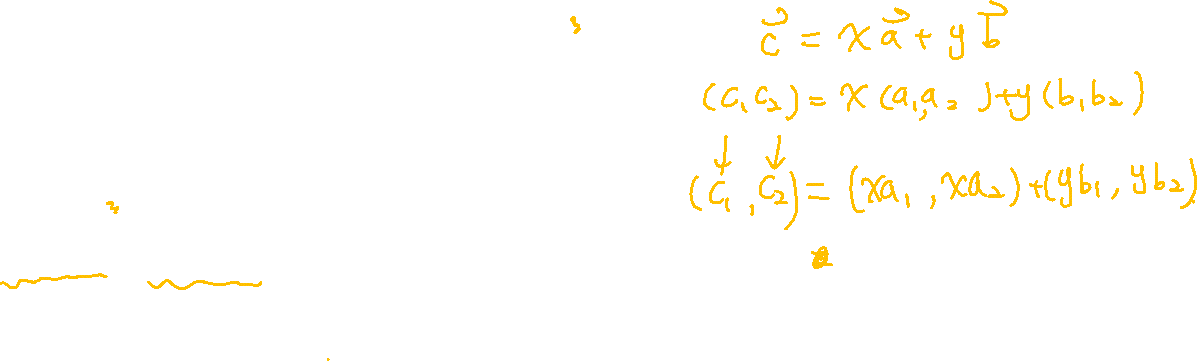 c⃗ = x a⃗ + y b⃗
(c₁ c₂) = x (a₁, a₂) + y (b₁ b₂)
↓ ↓
(c₁, c₂) = (xa₁, xa₂) + (yb₁, yb₂)